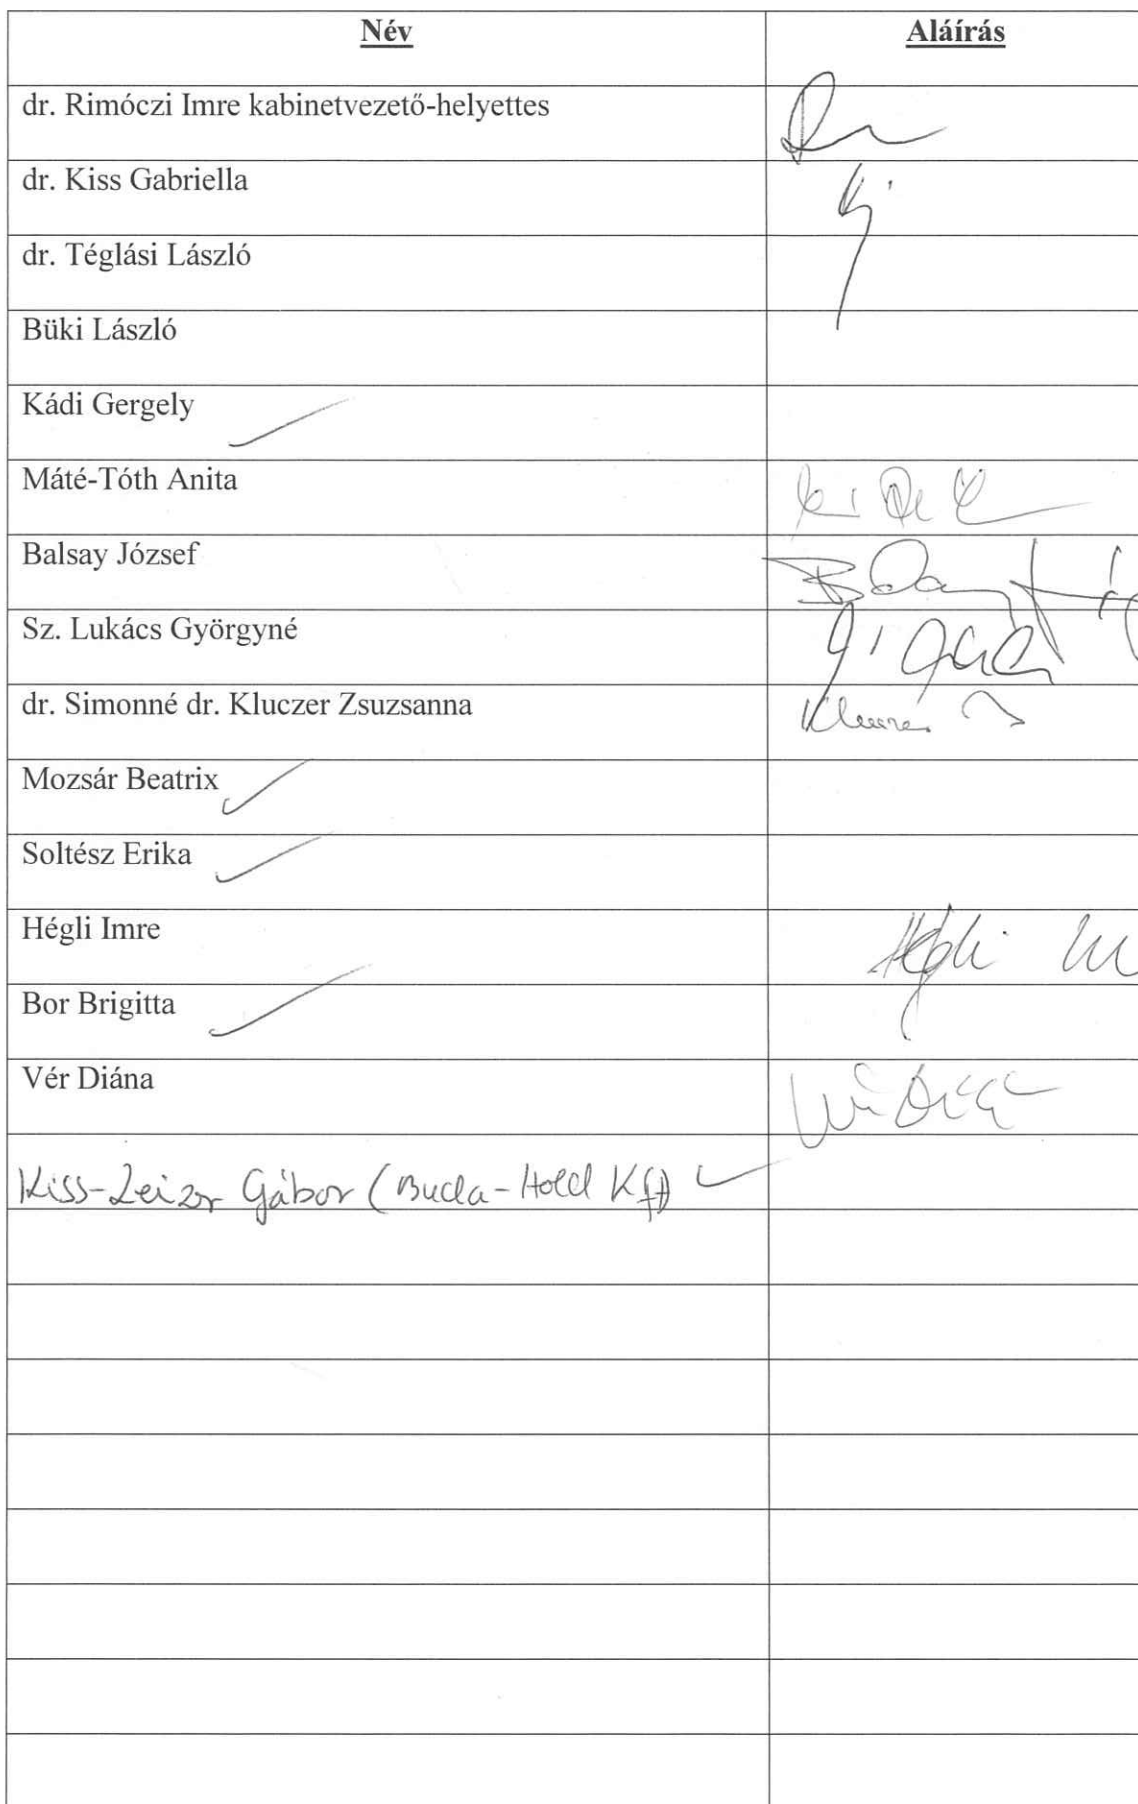 Név Aláírás
dr. Rimóczi Imre kabinetvezető-helyettes
dr. Kiss Gabriella
dr. Téglási László
Büki László
Kádi Gergely
Máté-Tóth Anita
Balsay József
Sz. Lukács Györgyné
dr. Simonné dr. Kluczer Zsuzsanna
Mozsár Beatrix
Soltész Erika
Hégli Imre Hégli
Bor Brigitta
Vér Diána
Kiss-Leizer Gábor (Buda-Hold Kft)